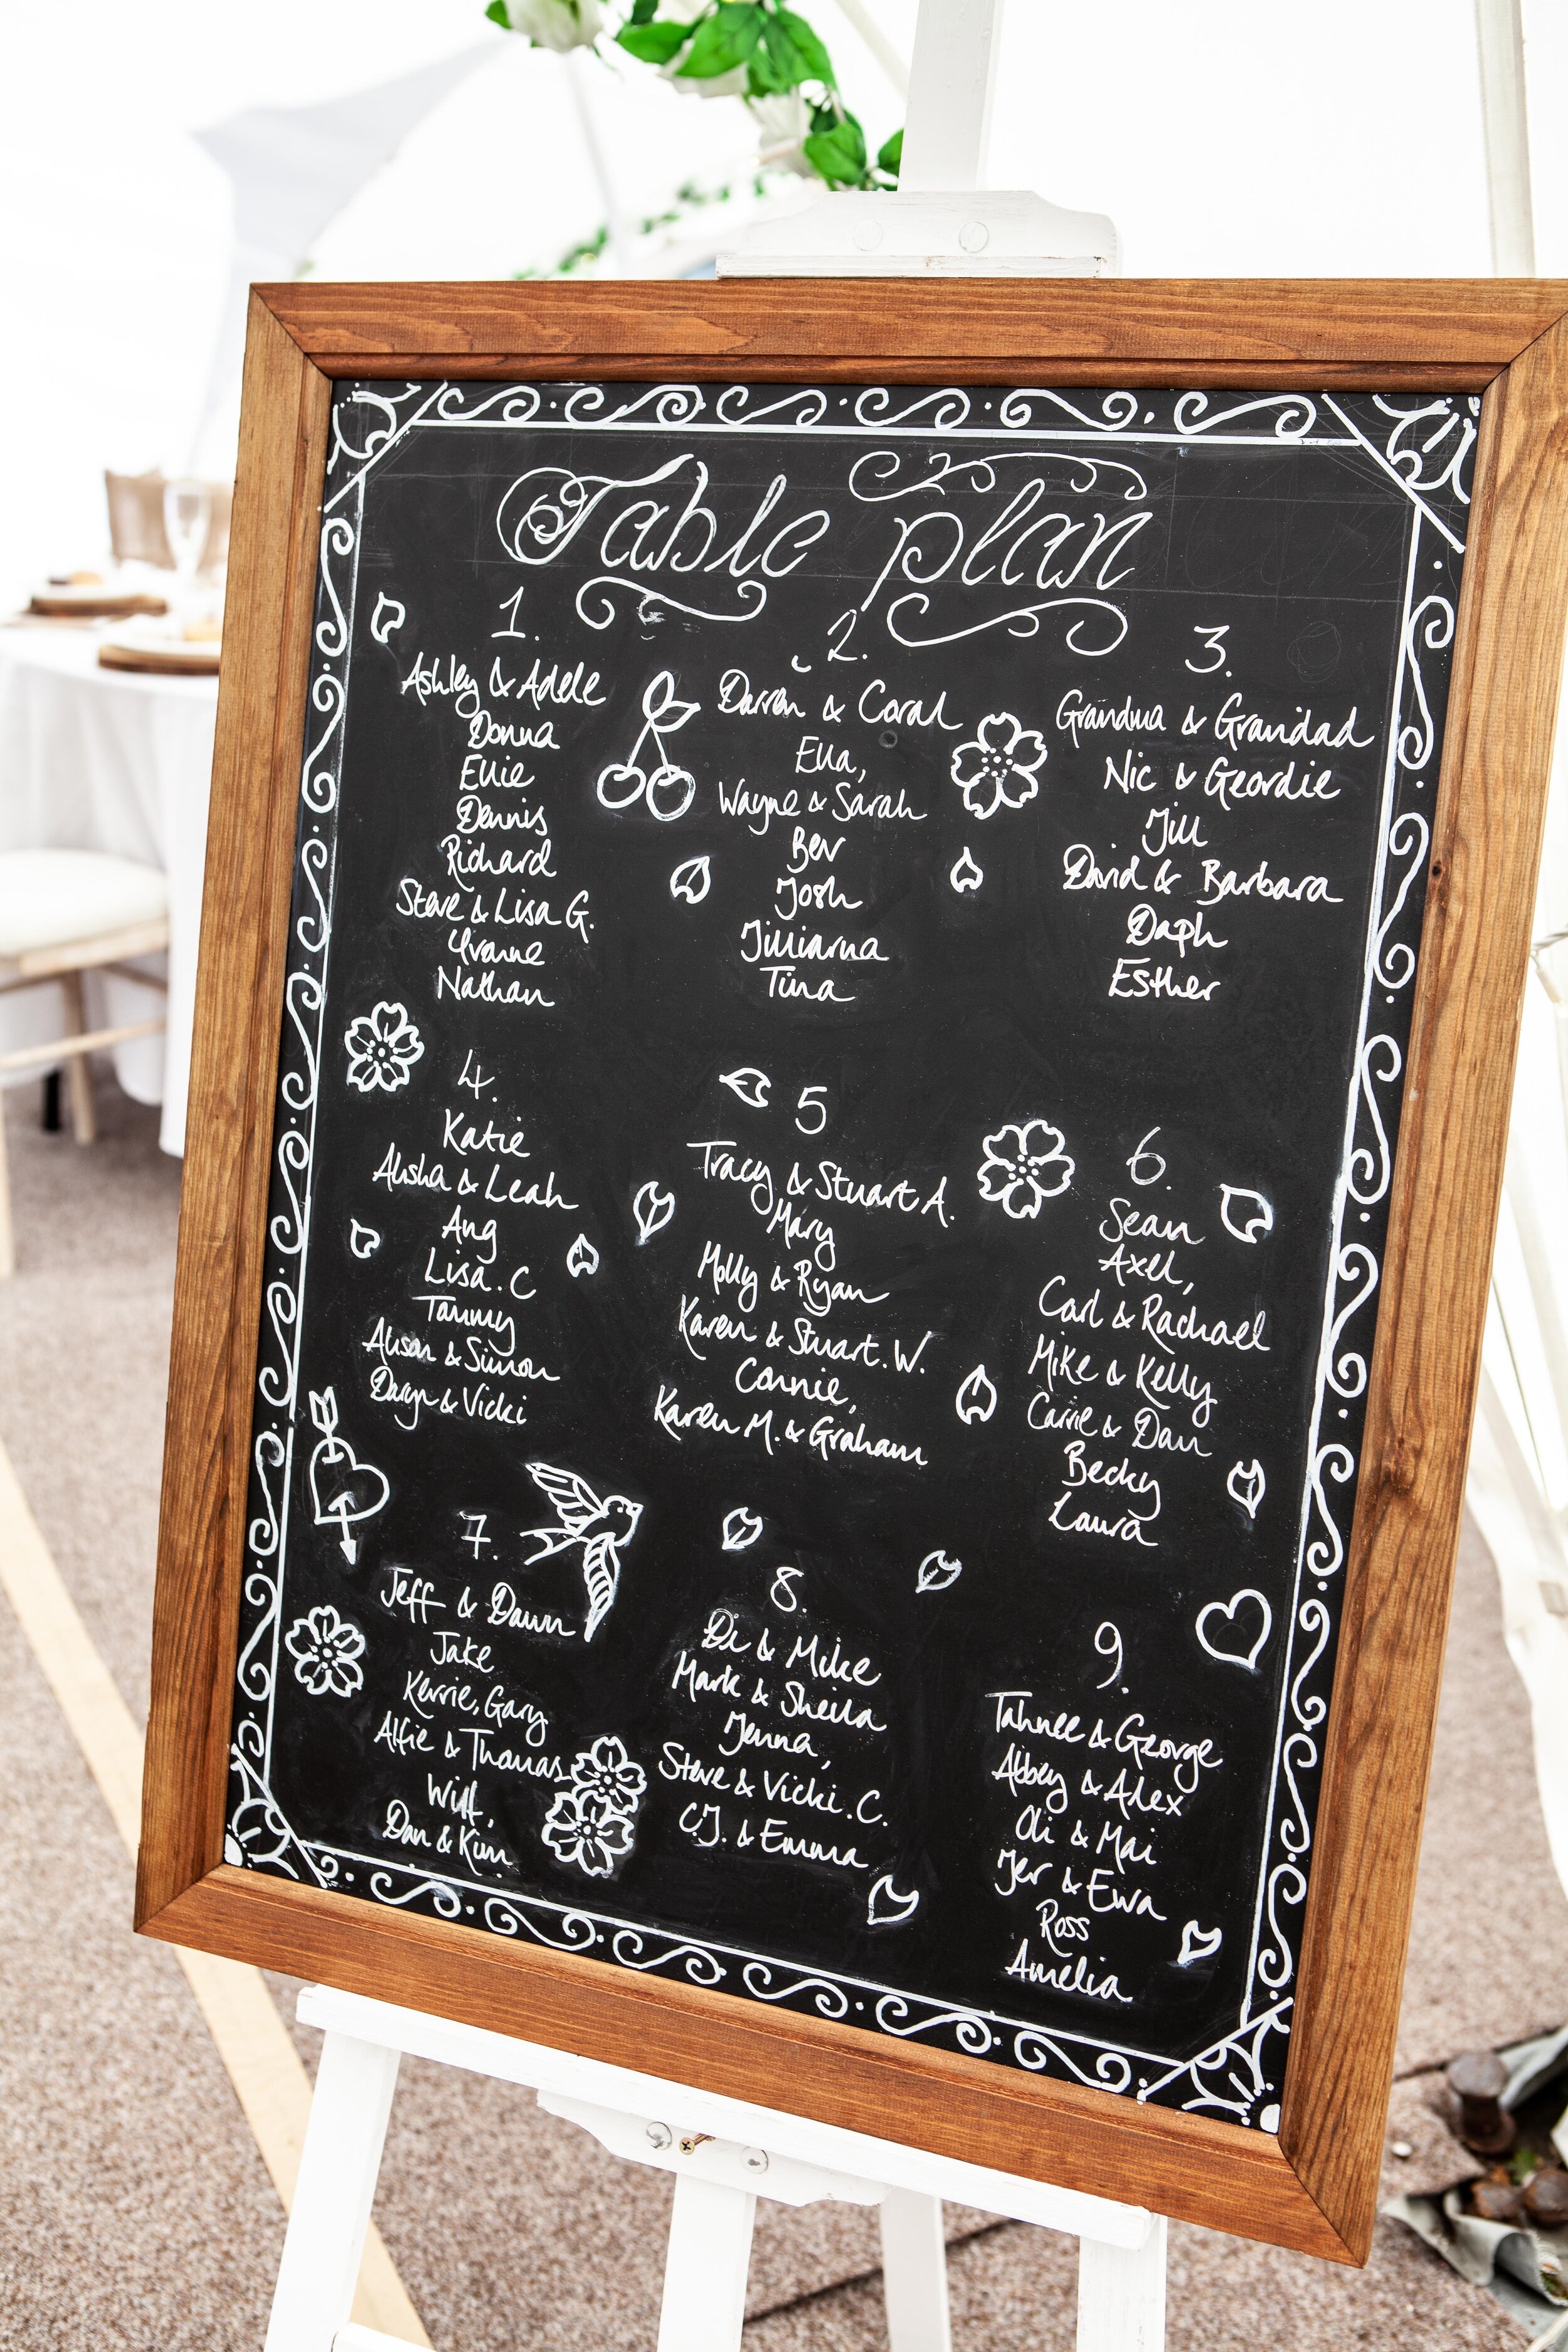 Table plan
1.
Ashley & Adele
Donna
Ellie
Dennis
Richard
Steve & Lisa G.
Yvonne
Nathan
2.
Darren & Coral
Ella,
Wayne & Sarah
Bev
Josh
Jillianna
Tina
3.
Grandma & Grandad
Nic & Geordie
Jill
David & Barbara
Daph
Esther
4.
Katie
Alisha & Leah
Ang
Lisa. C
Tammy
Alison & Simon
Daryn & Vicki
5
Tracy & Stuart A.
Mary
Molly & Ryan
Karen & Stuart. W.
Connie,
Karen M. & Graham
6.
Sean
Axel,
Carl & Rachael
Mike & Kelly
Carrie & Dan
Becky
Laura
7.
Jeff & Dawn
Jake
Kerrie, Gary
Alfie & Thomas
Will,
Dan & Kim
8.
Di & Mike
Mark & Sheila
Jenna,
Steve & Vicki. C.
C.J. & Emma
9.
Tahnee & George
Abbey & Alex
Oli & Mai
Jer & Ewa
Ross
Amelia